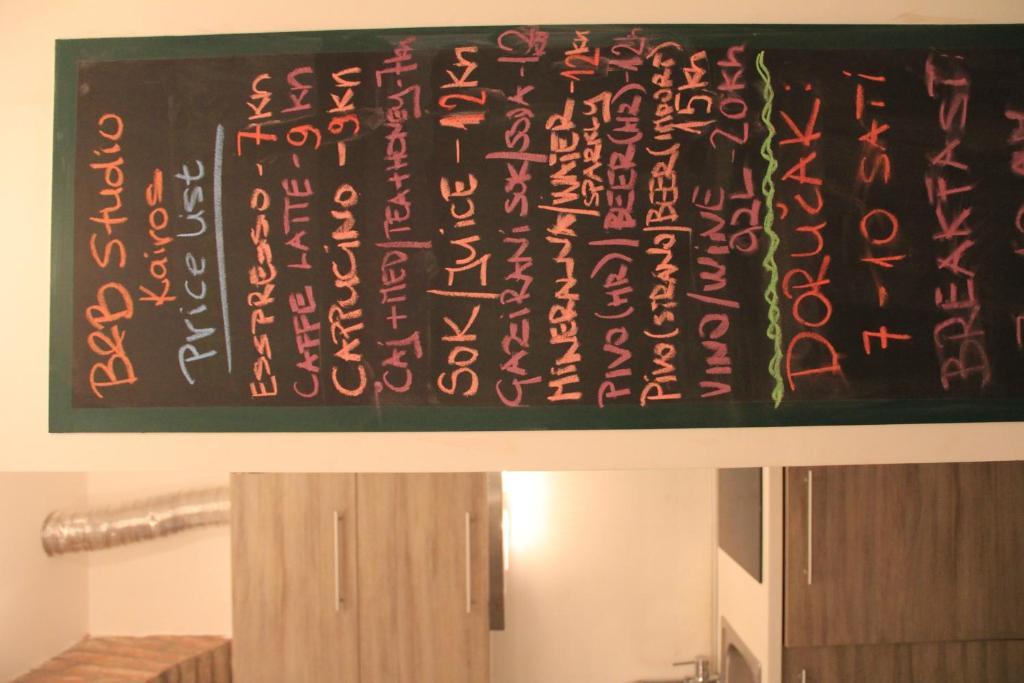 B&B Studio
Kairos
Price List
ESSPRESSO - 7kn
CAFFE LATTE - 9kn
CAPPUCINO - 9kn
ČAJ + MED/TEA+HONEY-7kn
SOK/JUICE - 12Kn
GAZIRANI SOK/SODA - 12
MINERALNA/WATER - 12kn
SPARKLY
PIVO (HR)/BEER(HR)-12k
PIVO(STRANO)/BEER(IMPORT)
15kn
VINO/WINE - 20Kn
0,2L
DORUČAK:
7-10 SATI
BREAKTAST: